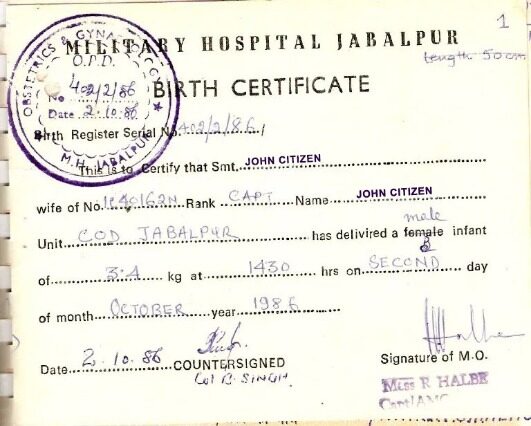 1
MILITARY HOSPITAL JABALPUR
Length 50cm
OBSTETRICS & GYNAECOLOGY
O.P.D.
No 402/2/86
Date 2/10/86
M.H. JABALPUR
BIRTH CERTIFICATE
Birth Register Serial No 402/2/86/
This is to Certify that Smt. JOHN CITIZEN
wife of No. Rank CAPT Name JOHN CITIZEN
male
Unit COD JABALPUR has delivired a female infant
of 3.4 kg at 1430 hrs on SECOND day
of month OCTOBER year 1986
Date 2.10.86 COUNTERSIGNED
Col B. SINGH.
Signature of M.O.
Miss R HALBE
Capt/AMC